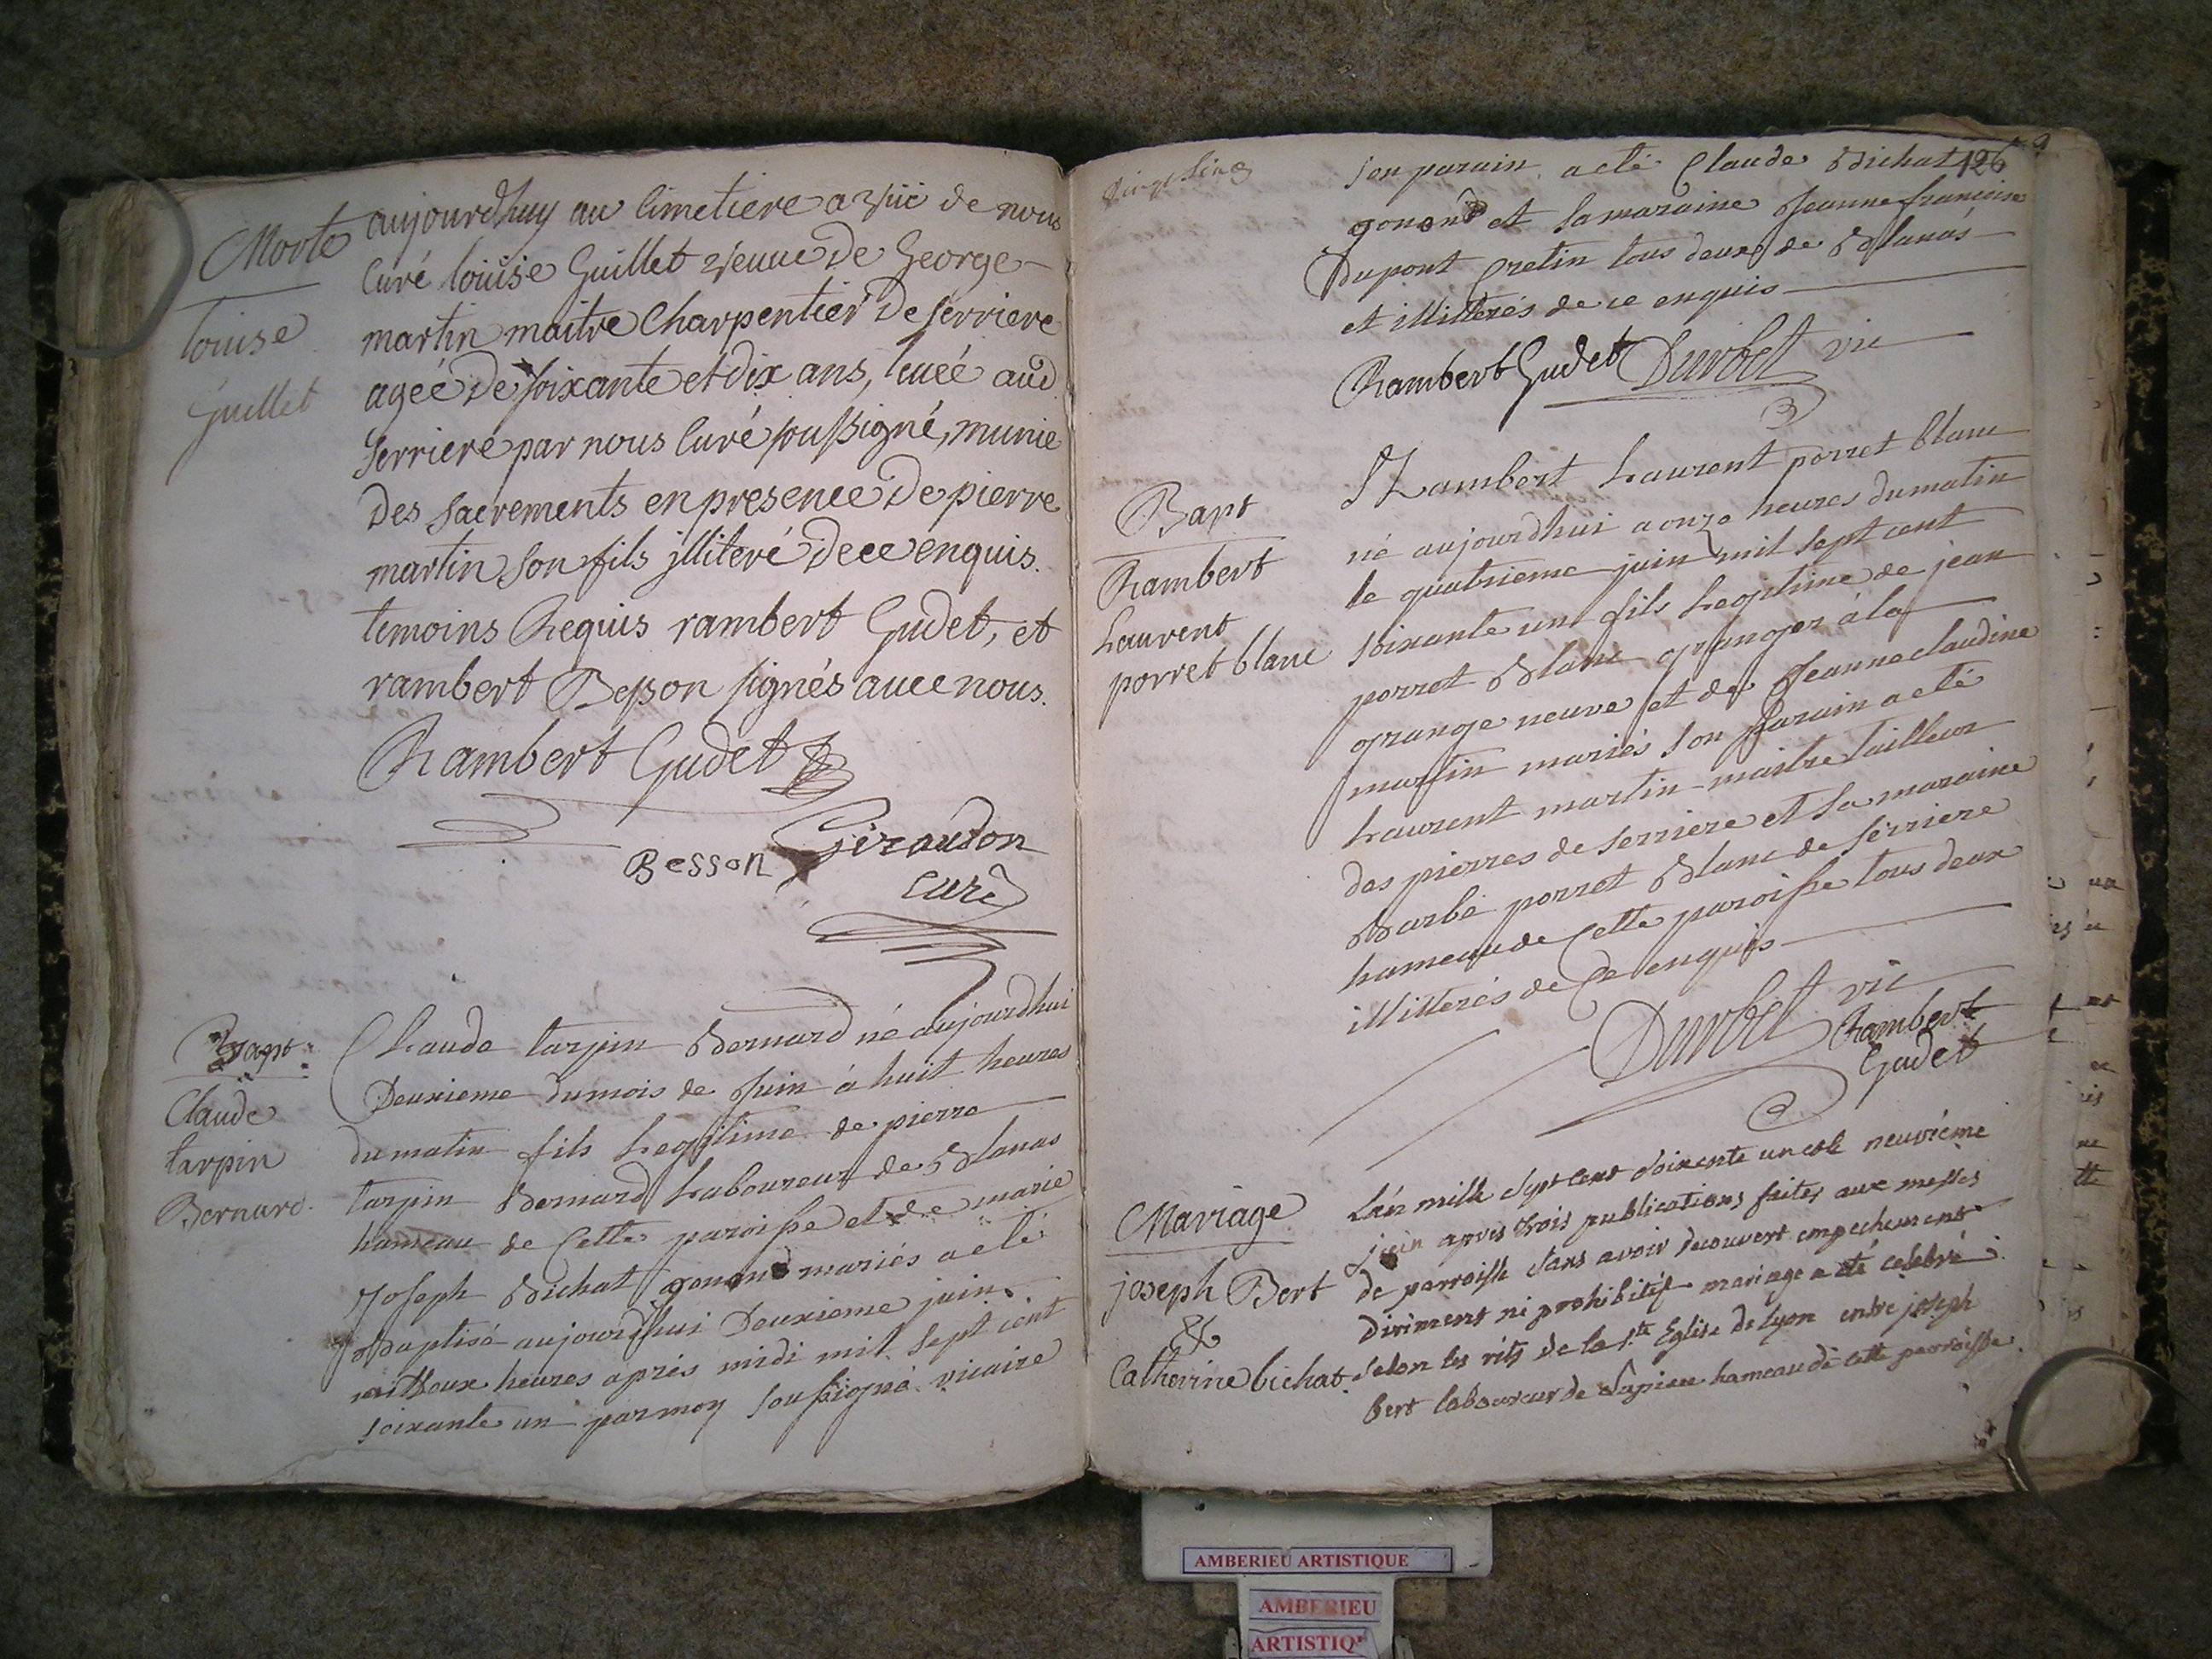 Morte
Louise
Guillet
aujourdhuy au Cimetiere a été de nous
Curé loüise Guillet veuve De George
martin maitre Charpentier De serriere
ageé De soixante et dix ans, leueé aud
serriere par nous Curé soussigné, munie
Des sacrements en presence De pierre
martin son fils jlliteré De ce enquis.
temoins Requis rambert Gudet, et
rambert Besson signés auec nous.
Rambert Gudet
Besson Giraudon
curé
Bapt
Claude
tarpin
Bernard.
Claude tarpin Bernard né aujourdhui
Deuxieme du mois de Juin á huit heures
du matin fils Legitime de pierre
tarpin Bernard Laboureur de Blanas
hameau de Cette paroisse et de marie
Joseph Bichat gonond mariés a eté
Baptisé aujourdhui Deuxieme juin
deux heures aprés midi mil sept cent
soixante un par moy soussigné vicaire
126
son parain a eté Claude Bichat
gonond et sa maraine Jeanne francoise
Dupont Cretin tous deux de Blanas
et illiterés de ce enquis
Rambert Gudet Durbet vic
Bapt
Rambert
Laurent
porret blanc
Rambert Laurent porret blanc
né aujourdhui a onze heures du matin
le quatrieme juin mil sept cent
soixante un fils Legitime de jean
porret Blanc granger á la
grange neuve et de Jeanne claudine
martin mariés son parain a eté
Laurent martin maitre tailleur
des pierres de serriere et sa maraine
Barbe porret Blanc de serriere
hameau de Cette paroisse tous deux
illiterés de Ce enquis
Durbet vic Rambert
Gudet
Mariage
joseph Bert
&
Catherine bichat
L'an mille sept cent soixente un et le neuviéme
juin apres trois publications faites aux messes
de parroisse sans avoir decouvert empechement
diriment ni prohibitif mariage a eté celebré
selon les rits de la s.te Eglise de Lyon entre joseph
bert laboureur de hameau de cette parroisse
AMBERIEU ARTISTIQUE
AMBERIEU
ARTISTIQ